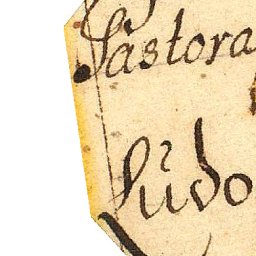 Pastora
Ludo